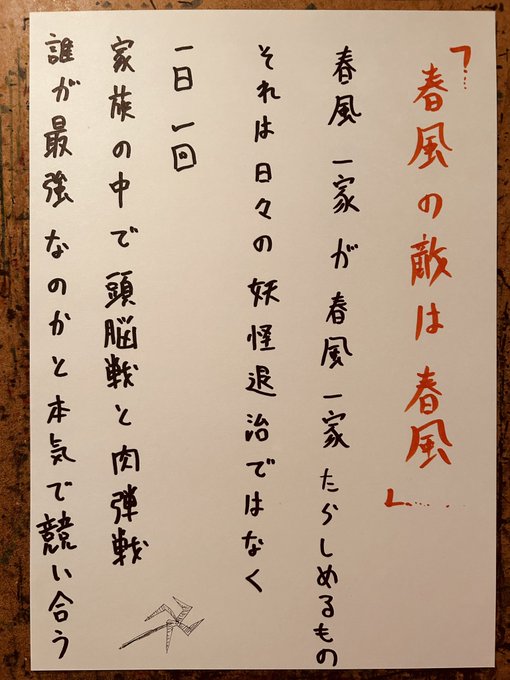 「春風の敵は春風」
春風一家が春風一家たらしめるもの
それは日々の妖怪退治ではなく
一日一回
家族の中で頭脳戦と肉弾戦
誰が最強なのかと本気で競い合う